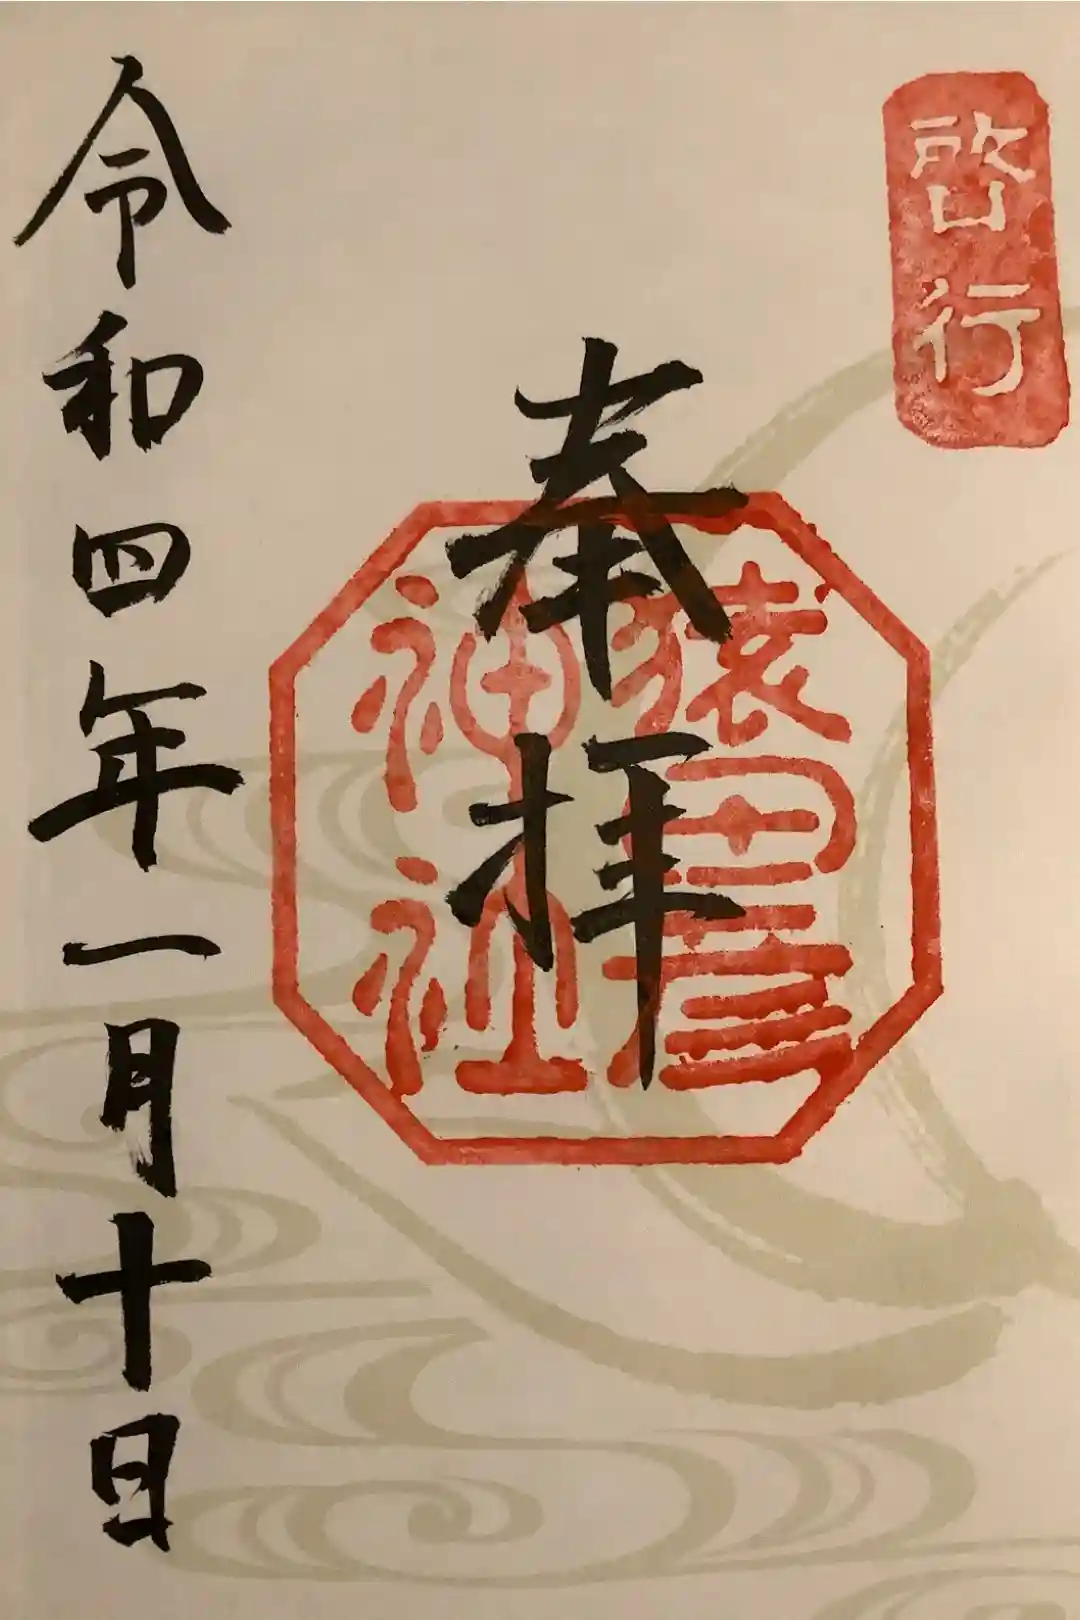 啓行
奉拝
猿田彦
神社
令和四年一月十日